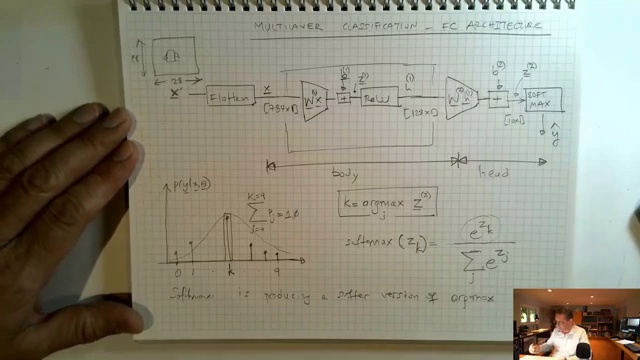 MULTILAYER CLASSIFICATION - FC ARCHITECTURE
28
28
X
Flatten
x
[784x1]
W⁽¹⁾x
b⁽¹⁾
+
z⁽¹⁾
ReLU
h⁽¹⁾
[128x1]
W⁽²⁾h⁽¹⁾
b⁽²⁾
+
z⁽²⁾
[10x1]
SOFT
MAX
ŷ
body
head
P(y|x,θ)
K=9
∑ ŷj = 1.0
j=0
0 1 k 9
k = argmax z⁽²⁾
j
softmax (zk) = e^zk / ∑j e^zj
Softmax is producing a softer version of argmax